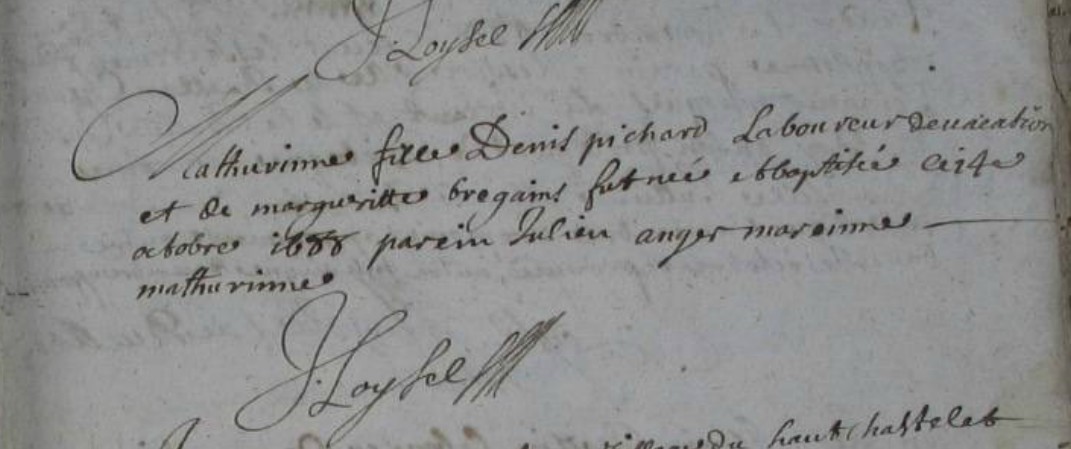 J. Loysel
Mathurinne fille Denis pichard Laboureur de vacation
et de margueritte bregains fut née et baptisée le 14e
octobre 1688 parein Julien anger mareinne
mathurinne
J. Loysel
du haut chastelet